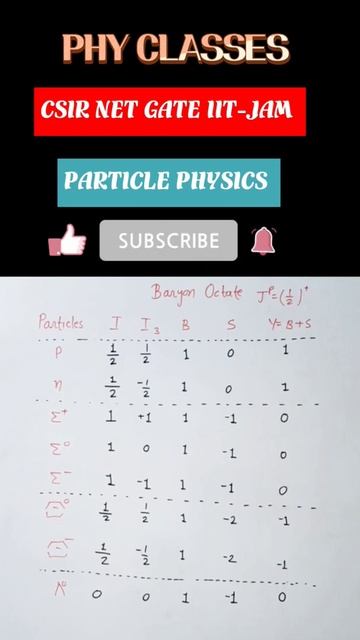 PHY CLASSES
CSIR NET GATE IIT-JAM
PARTICLE PHYSICS
SUBSCRIBE
Baryon Octate J^P=(1/2)^+
Particles I I₃ B S Y=B+S
P 1/2 1/2 1 0 1
n 1/2 -1/2 1 0 1
Σ⁺ 1 +1 1 -1 0
Σ⁰ 1 0 1 -1 0
Σ⁻ 1 -1 1 -1 0
Ξ⁰ 1/2 1/2 1 -2 -1
Ξ⁻ 1/2 -1/2 1 -2 -1
Λ⁰ 0 0 1 -1 0